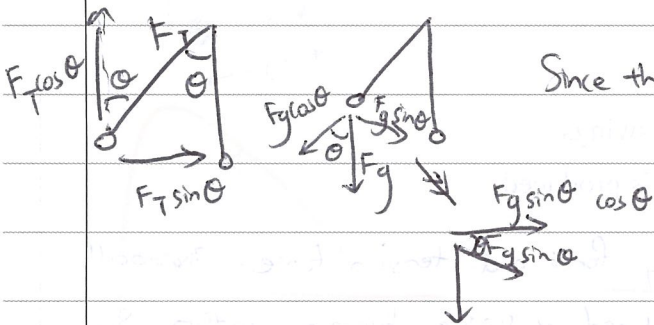 F_T cosθ
θ
F_T
θ
F_T sinθ
Fgcosθ
Fg sinθ
θ
Fg
Since th
Fg sinθ cosθ
θ Fg sinθ